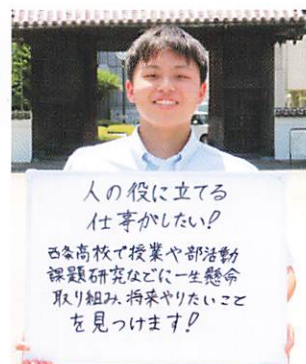 人の役に立てる
仕事がしたい!
西条高校で授業や部活動
課題研究などに一生懸命
取り組み、将来やりたいこと
を見つけます!